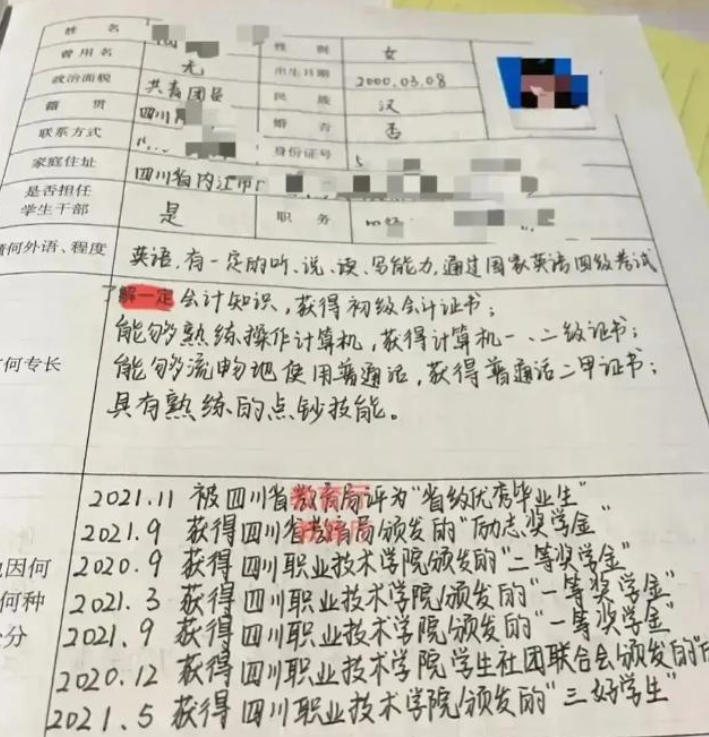 姓 名
性 别 女
曾用名 无
出生日期 2000.03.08
政治面貌 共青团员
民 族 汉
籍 贯 四川
婚 否 否
联系方式
身份证号
家庭住址 四川省内江市
是否担任
学生干部 是 职 务
何外语、程度 英语,有一定的听、说、读、写能力,通过国家英语四级考试
了解一定会计知识,获得初级会计证书;
能够熟练操作计算机,获得计算机一、二级证书;
何专长 能够流畅地使用普通话,获得普通话二甲证书;
具有熟练的点钞技能。
2021.11 被四川省教育局评为“省级优秀毕业生”
2021.9 获得四川省教育局颁发的“励志奖学金”
因何 2020.9 获得四川职业技术学院颁发的“二等奖学金”
何种 2021.3 获得四川职业技术学院颁发的“一等奖学金”
分 2021.9 获得四川职业技术学院颁发的“一等奖学金”
2020.12 获得四川职业技术学院学生社团联合会颁发的“
2021.5 获得四川职业技术学院颁发的“三好学生”